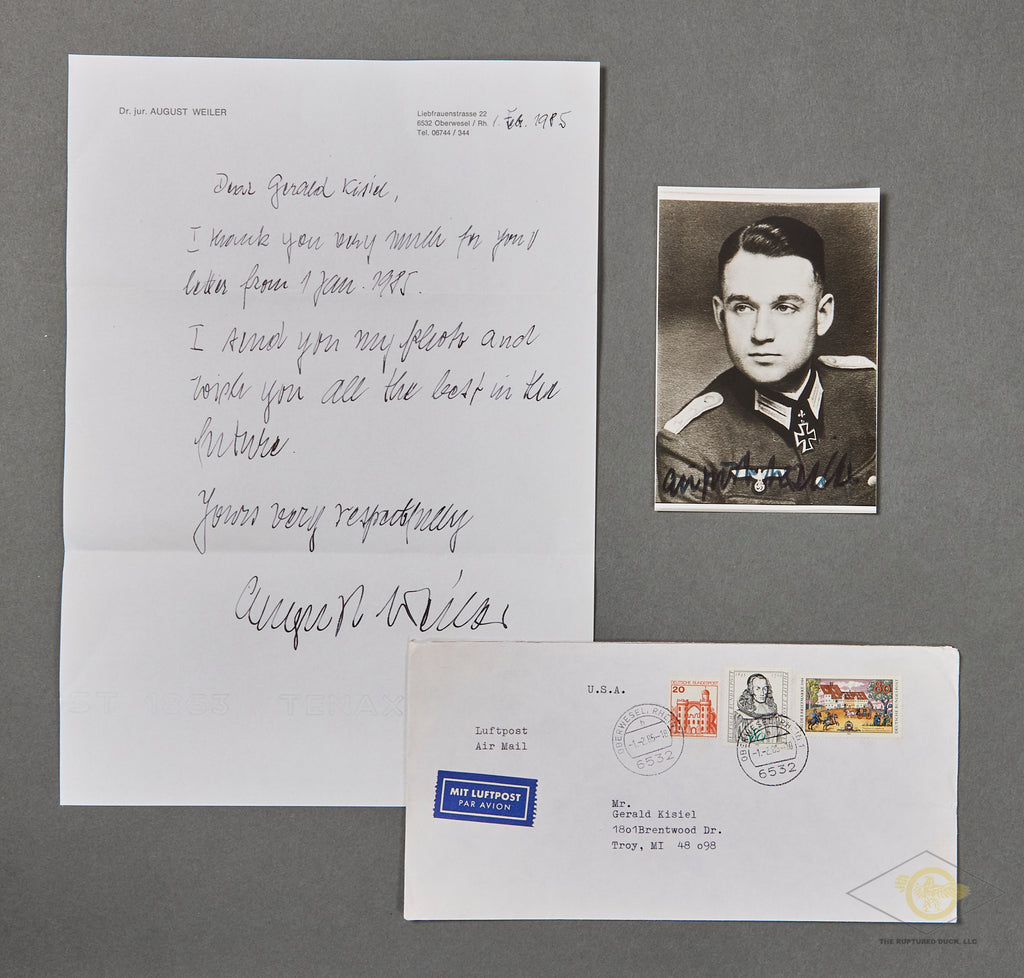 Dr. jur. AUGUST WEILER
Liebfrauenstrasse 22
6532 Oberwesel / Rh.
Tel. 06744 / 344
1. 1985
Dear Gerald Kisiel,
I thank you very much for your
letter from 1 Jan. 1985.
I send you my photo and
wish you all the best in the
future.
Yours very respectfully
August Weiler
August Weiler
U.S.A.
Luftpost
Air Mail
MIT LUFTPOST
PAR AVION
DEUTSCHE BUNDESPOST
20
80
OBERWESEL, RHEIN
-1.-2.85-18
6532
OBERWESEL, RH. 1
-1.-2.85-18
6532
Mr.
Gerald Kisiel
18o1Brentwood Dr.
Troy, MI 48 o98
THE RUPTURED DUCK, LLC